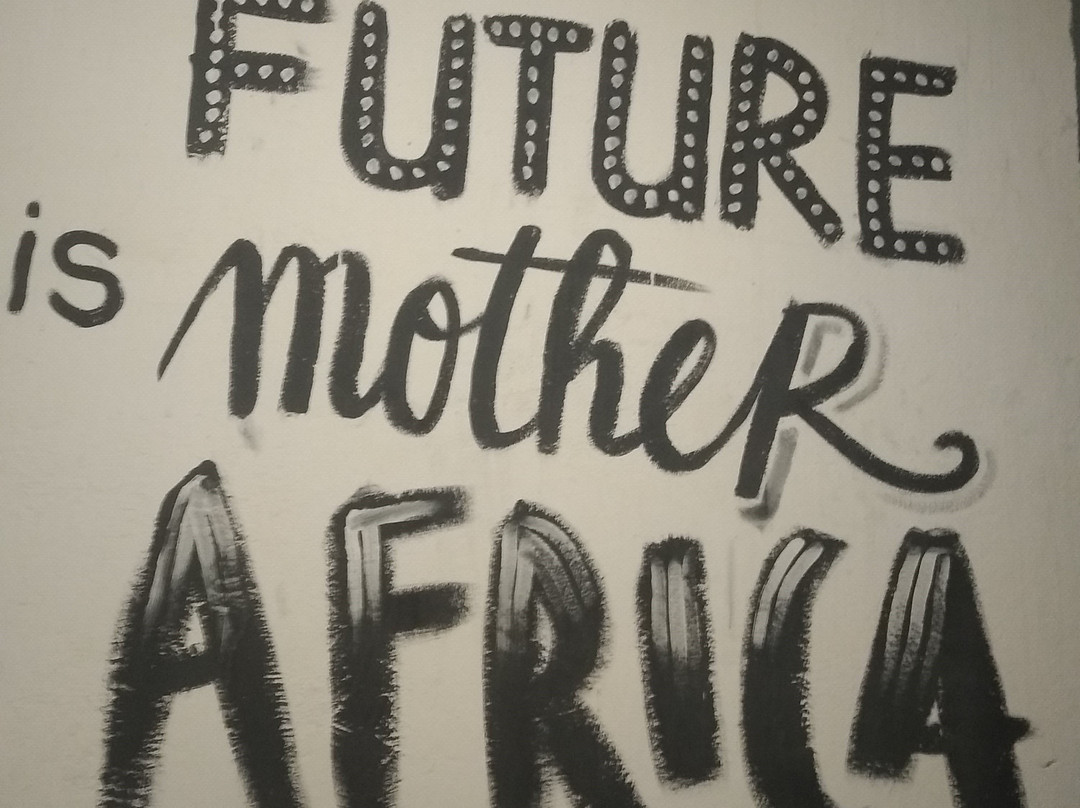 FUTURE
is motheR
AFRICA